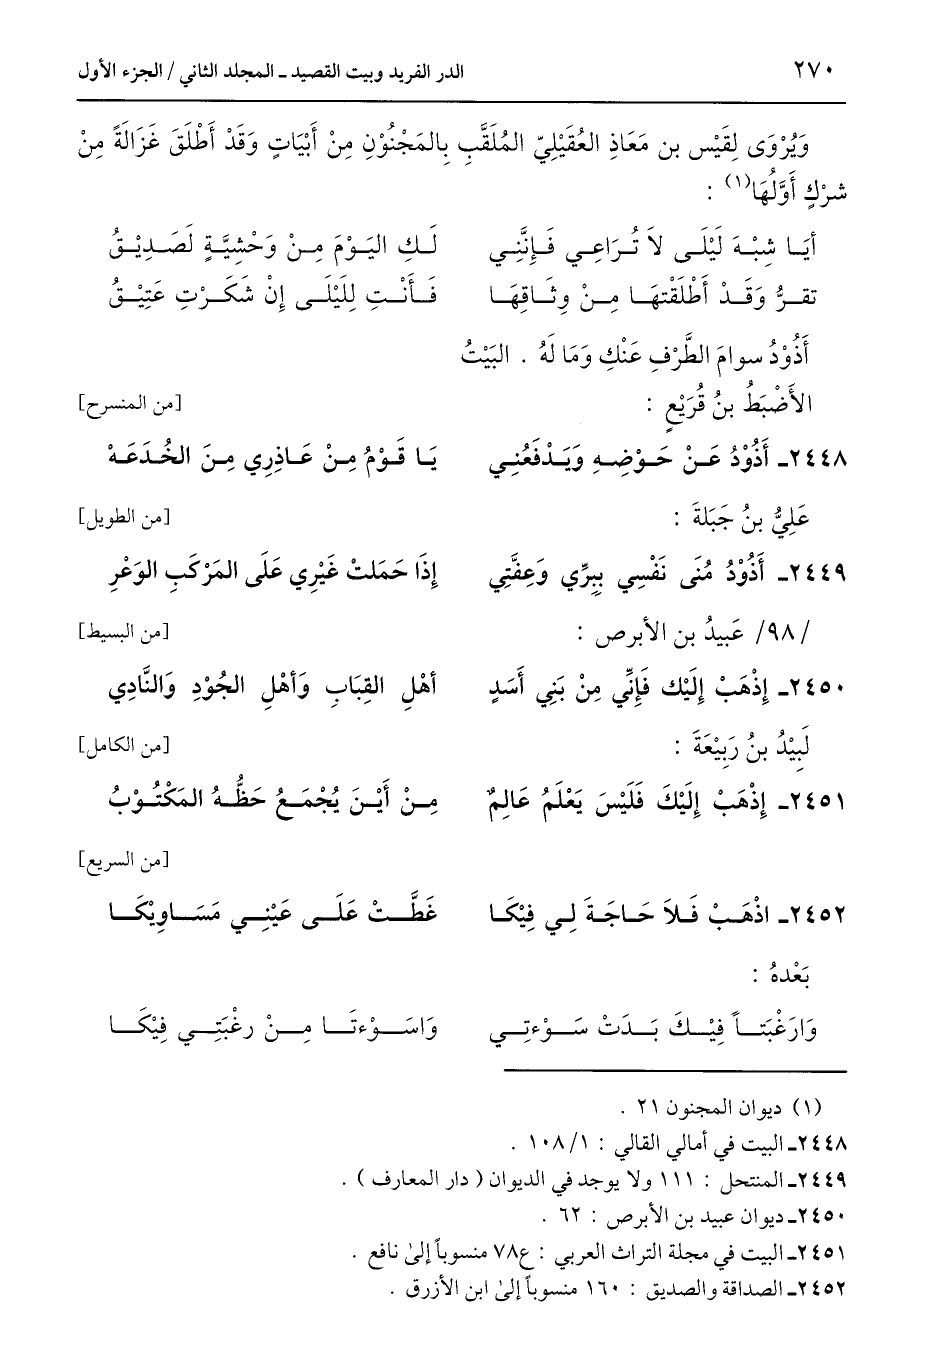 ٢٧٠ الدر الفريد وبيت القصيد ـ المجلد الثاني / الجزء الأول
وَيُرْوَى لِقَيْسِ بن مَعَاذِ العُقَيْلِيّ المُلَقَّبِ بِالمَجْنُوْنِ مِنْ أَبْيَاتٍ وَقَدْ أَطْلَقَ غَزَالَةً مِنْ
شركٍ أَوَّلُهَا(١) :
أيَا شِبْهَ لَيْلَى لاَ تُرَاعِي فَإِنَّنِي لَكِ اليَوْمَ مِنْ وَحْشِيَّةٍ لَصَدِيْقُ
تقرُّ وَقَدْ أَطْلَقْتهَا مِنْ وِثَاقِهَا فَأَنْتِ لِلَيْلَى إِنْ شَكَرْتِ عَتِيْقُ
أَذُوْدُ سوامَ الطَّرْفِ عَنْكِ وَمَا لَهُ . البَيْتُ
الأَضْبَطُ بنُ قُرَيْعٍ : [من المنسرح]
٢٤٤٨ـ أَذُوْدُ عَنْ حَوْضِهِ وَيَدْفَعُنِي يَا قَوْمُ مِنْ عَاذِرِي مِنَ الخُدَعَهْ
عَلِيُّ بنُ جَبَلةَ : [من الطويل]
٢٤٤٩ـ أَذُوْدُ مُنَى نَفْسِي بِبِرِّي وَعِفَّتِي إِذَا حَمَلتْ غَيْرِي عَلَى المَرْكَبِ الوَعْرِ
/٩٨/ عَبيدُ بن الأبرص : [من البسيط]
٢٤٥٠ـ إِذْهَبْ إِلَيْك فَإِنِّي مِنْ بَنِي أَسَدٍ أهْلِ القِبَابِ وَأهْلِ الجُوْدِ وَالنَّادِي
لَبِيْدُ بنُ رَبِيْعَةَ : [من الكامل]
٢٤٥١ـ إِذْهَبْ إِلَيْكَ فَلَيْسَ يَعْلَمُ عَالِمٌ مِنْ أَيْنَ يُجْمَعُ حَظُّهُ المَكْتُوْبُ
[من السريع]
٢٤٥٢ـ اذْهَبْ فَلاَ حَاجَةَ لِي فِيْكَا غَطَّتْ عَلَى عَيْنِي مَسَاوِيْكَا
بَعْدهُ :
وَارَغْبَتاً فِيْكَ بَدَتْ سَوْءتِي وَاسَوْءتَا مِنْ رغْبَتِي فِيْكَا
(١) ديوان المجنون ٢١ .
٢٤٤٨ـ البيت في أمالي القالي : ١/ ١٠٨ .
٢٤٤٩ـ المنتحل : ١١١ ولا يوجد في الديوان ( دار المعارف ) .
٢٤٥٠ـ ديوان عبيد بن الأبرص : ٦٢ .
٢٤٥١ـ البيت في مجلة التراث العربي : ع٧٨ منسوباً إلىٰ نافع .
٢٤٥٢ـ الصداقة والصديق : ١٦٠ منسوباً إلىٰ ابن الأزرق .